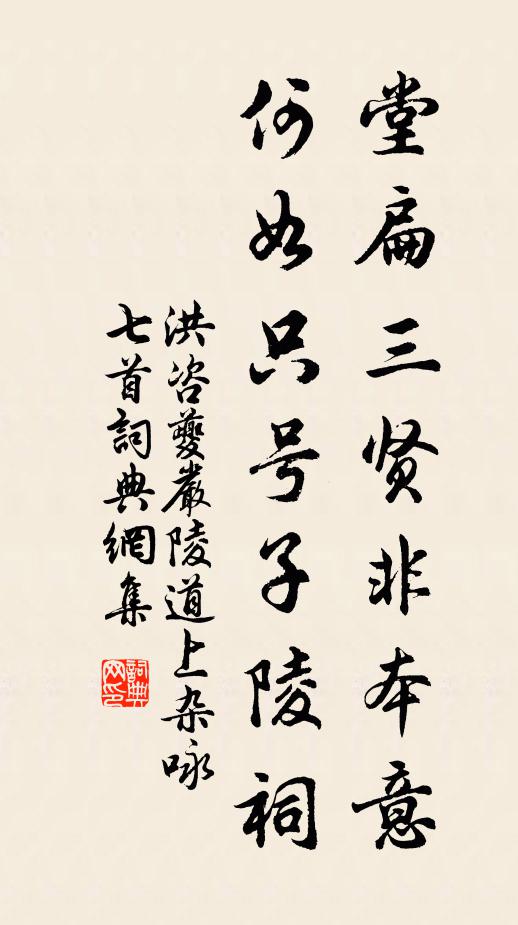 堂扁三贤非本意
何如只号子陵祠
洪咨夔嚴陵道上杂咏
七首詞典網集
詞典
网印